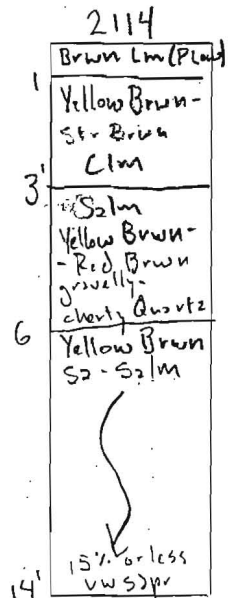 2114
Brwn Lm (Plow)
1
Yellow Brwn-
Str Brwn
Clm
3'
Salm
Yellow Brwn-
- Red Brwn
gravelly-
cherty Quartz
6
Yellow Brwn
Sa - Salm
15% or less
14'